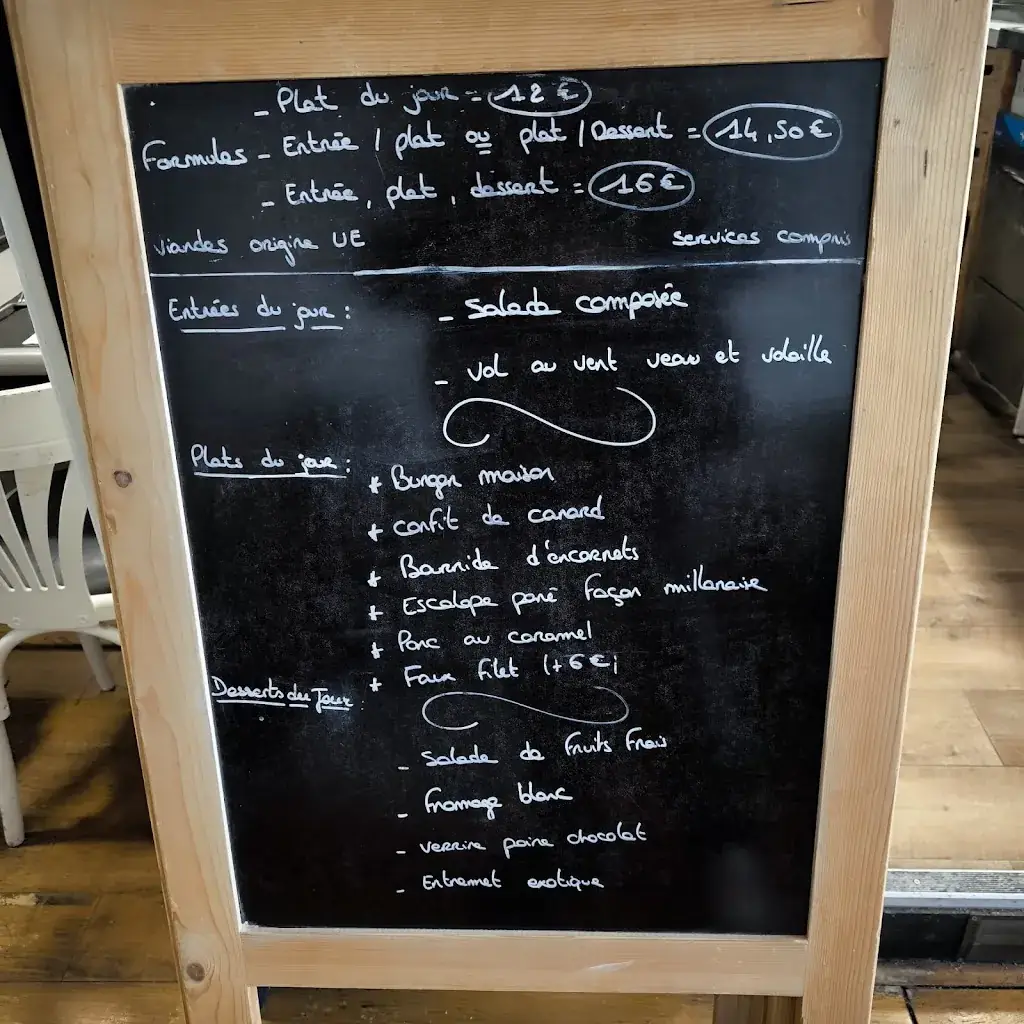 - Plat du jour = 12 €
Formules - Entrée / plat ou plat / Dessert = 14,50 €
- Entrée, plat, dessert = 16 €
Viandes origine UE services compris
Entrées du jour : - Salade composée
- vol au vent veau et volaille
Plats du jour :
* Burger maison
* confit de canard
* Barride d'encornets
* Escalope pané façon millanaise
* Porc au caramel
* Faux filet (+6 €)
Desserts du Jour :
- Salade de fruits frais
- fromage blanc
- verrine poire chocolat
- Entremet exotique